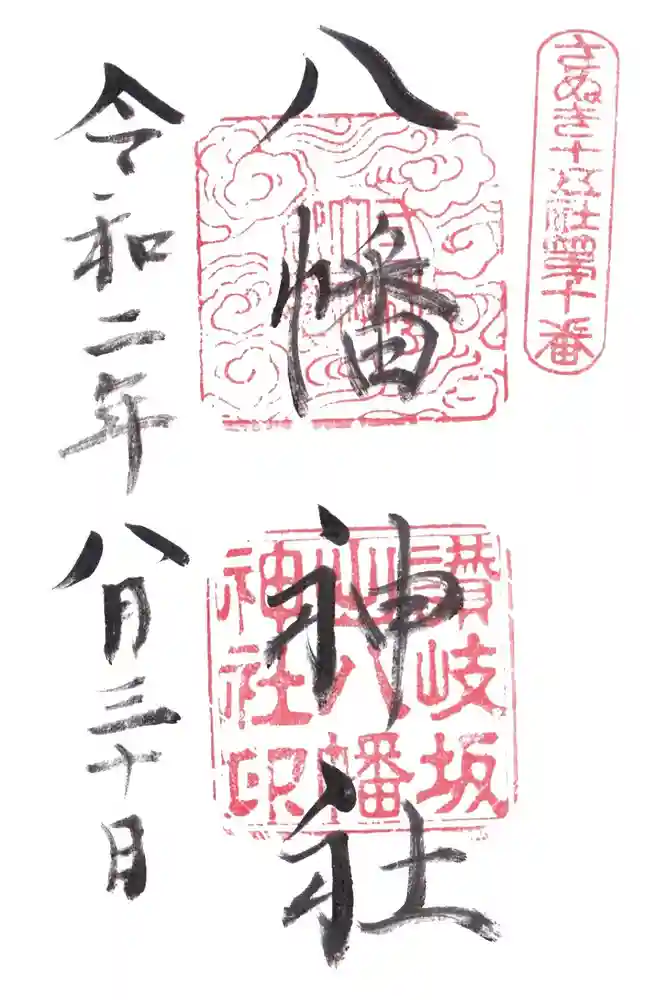 さぬき十五社第十番
八幡神社
八幡
讃岐坂
出八幡
神社印
令和二年
八月三十日